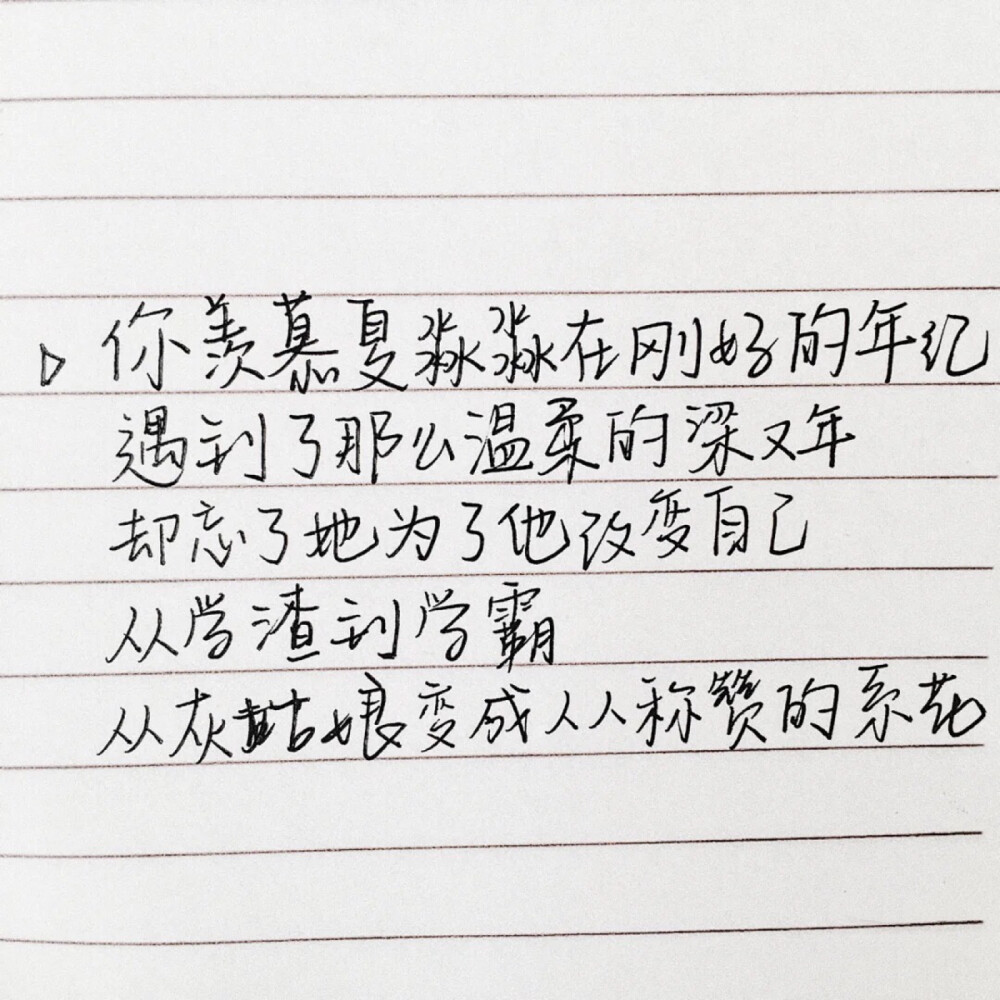 ▷ 你羡慕夏淼淼在刚好的年纪
遇到了那么温柔的梁又年
却忘了她为了他改变自己
从学渣到学霸
从灰姑娘变成人人称赞的系花